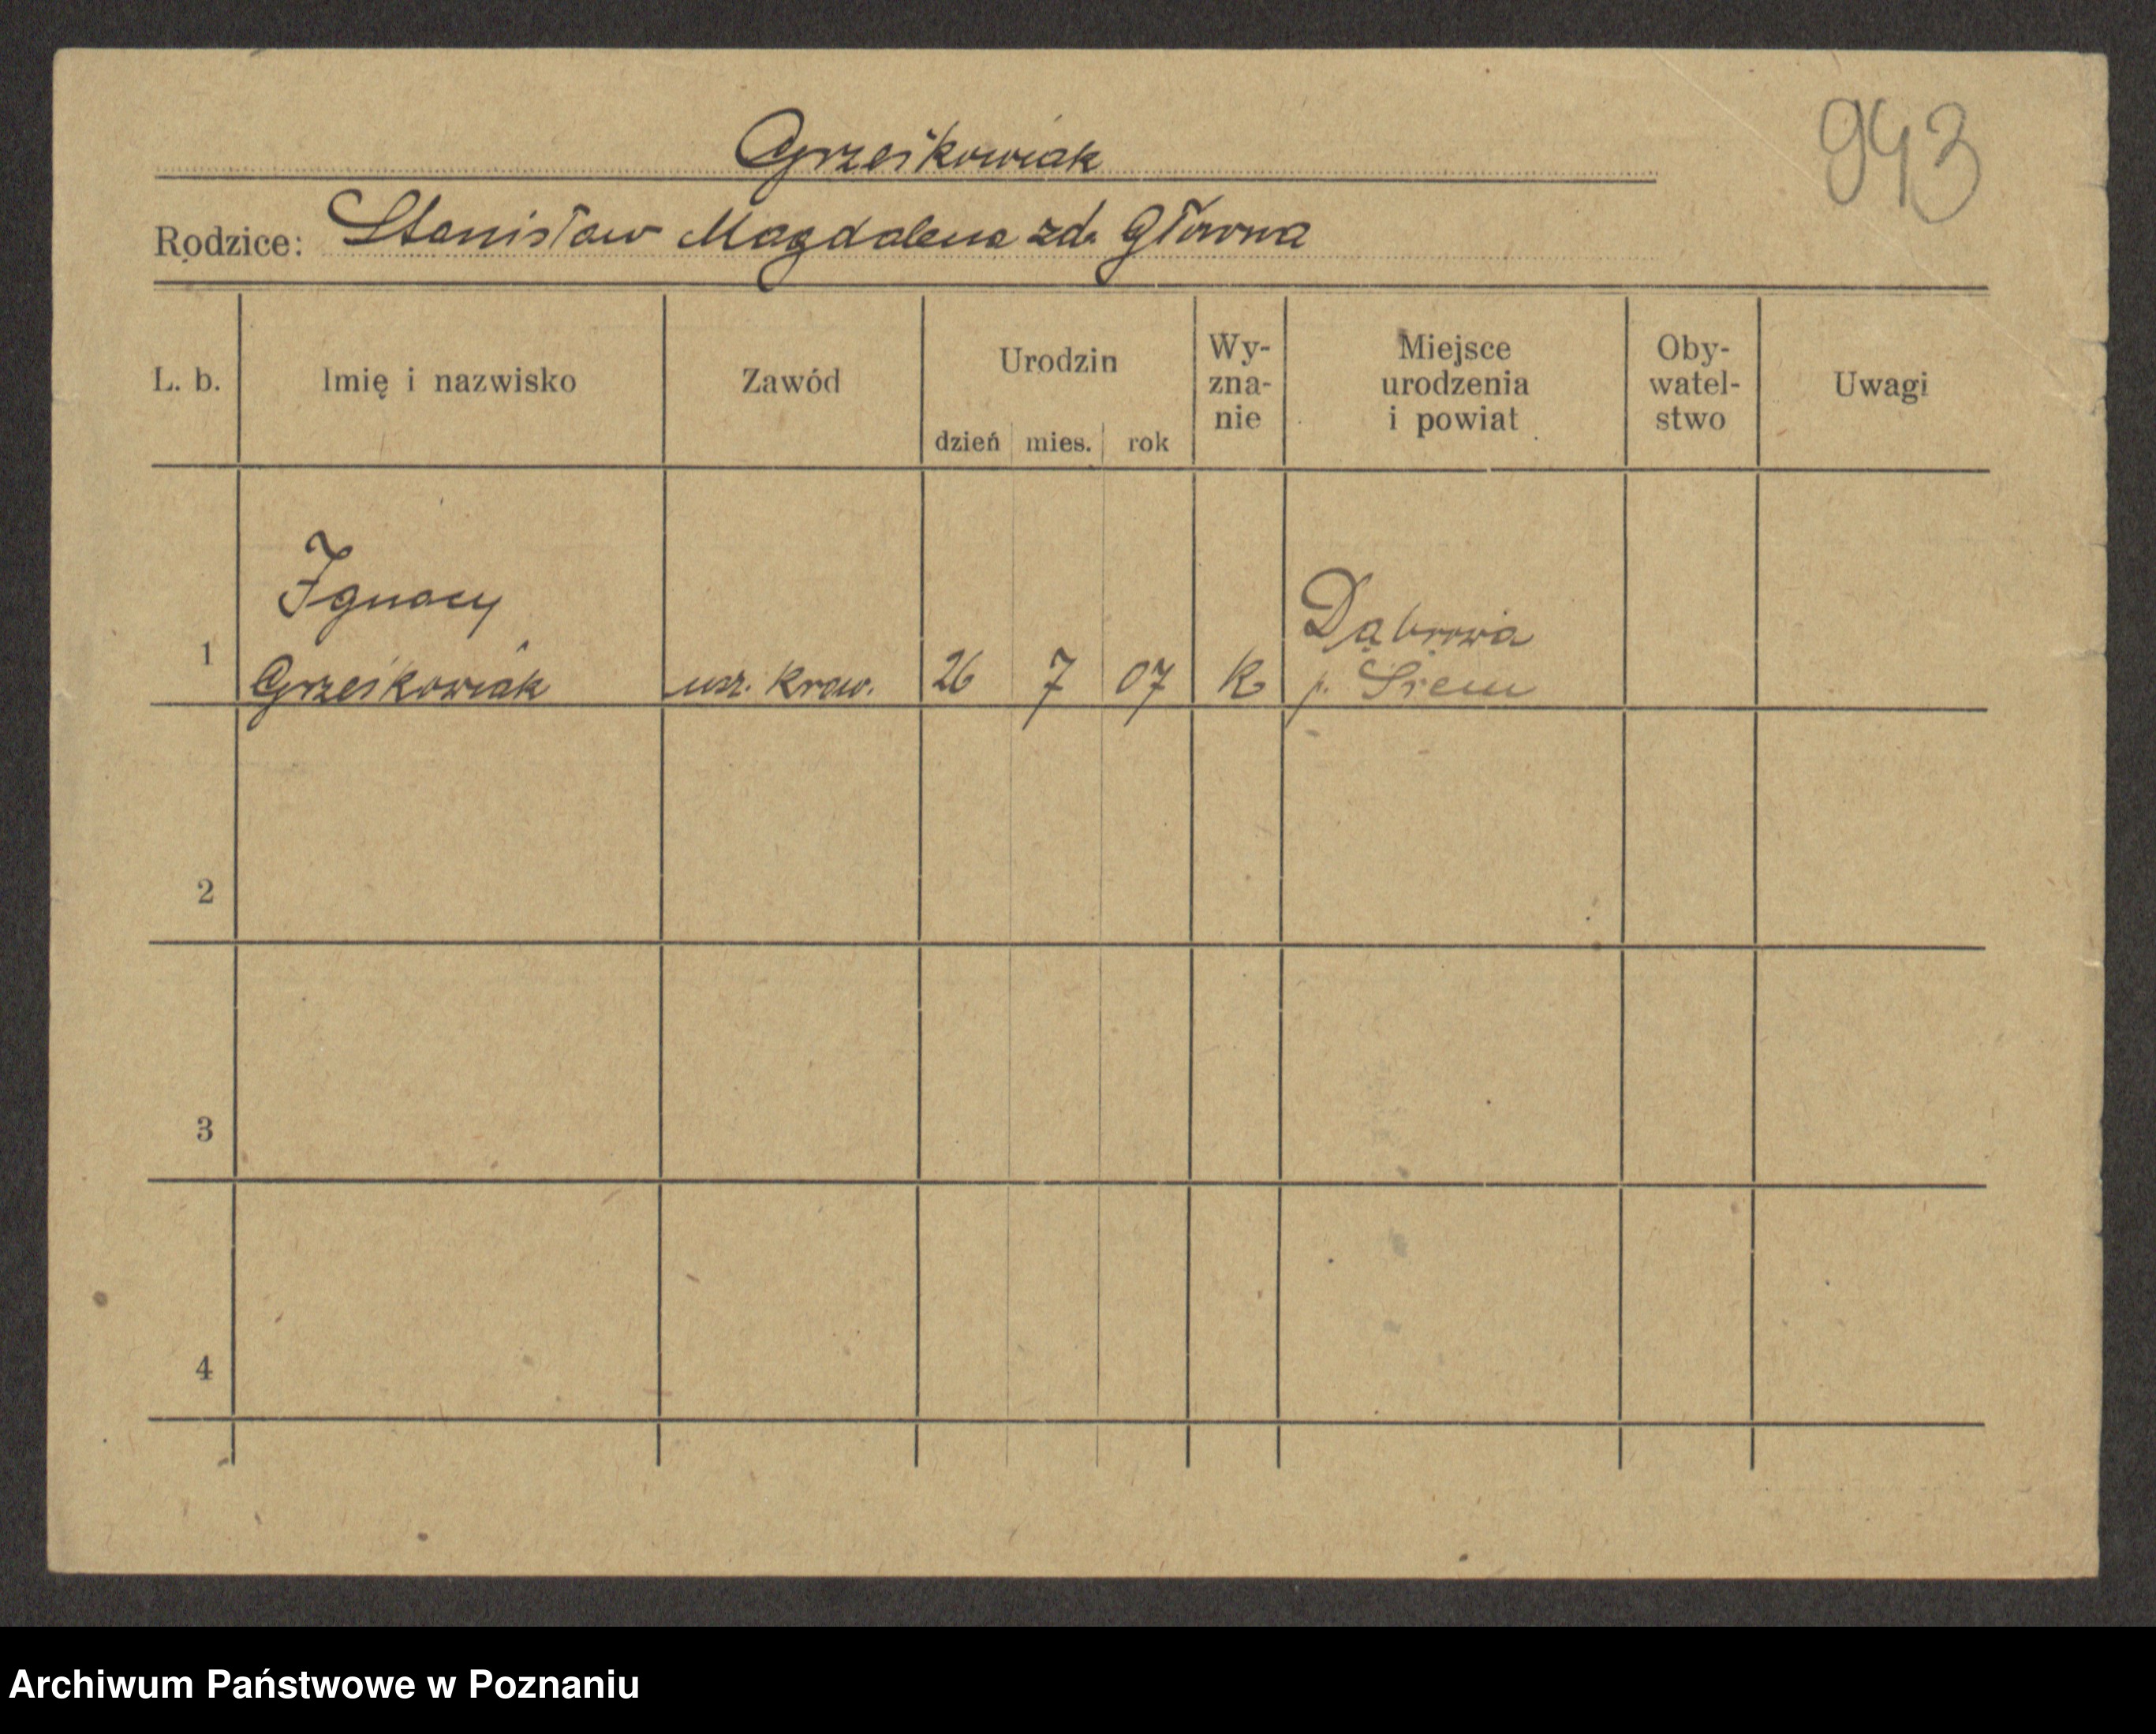 943
Grześkowiak
Rodzice: Stanisław Magdalena zd. Głowna
L. b.
Imię i nazwisko
Zawód
Urodzin
dzień mies. rok
Wy-
zna-
nie
Miejsce
urodzenia
i powiat
Oby-
watel-
stwo
Uwagi
Ignacy
Dąbrowa
1 Grześkowiak ucz. kraw. 26 7 07 k p. Śrem
2
3
4
Archiwum Państwowe w Poznaniu